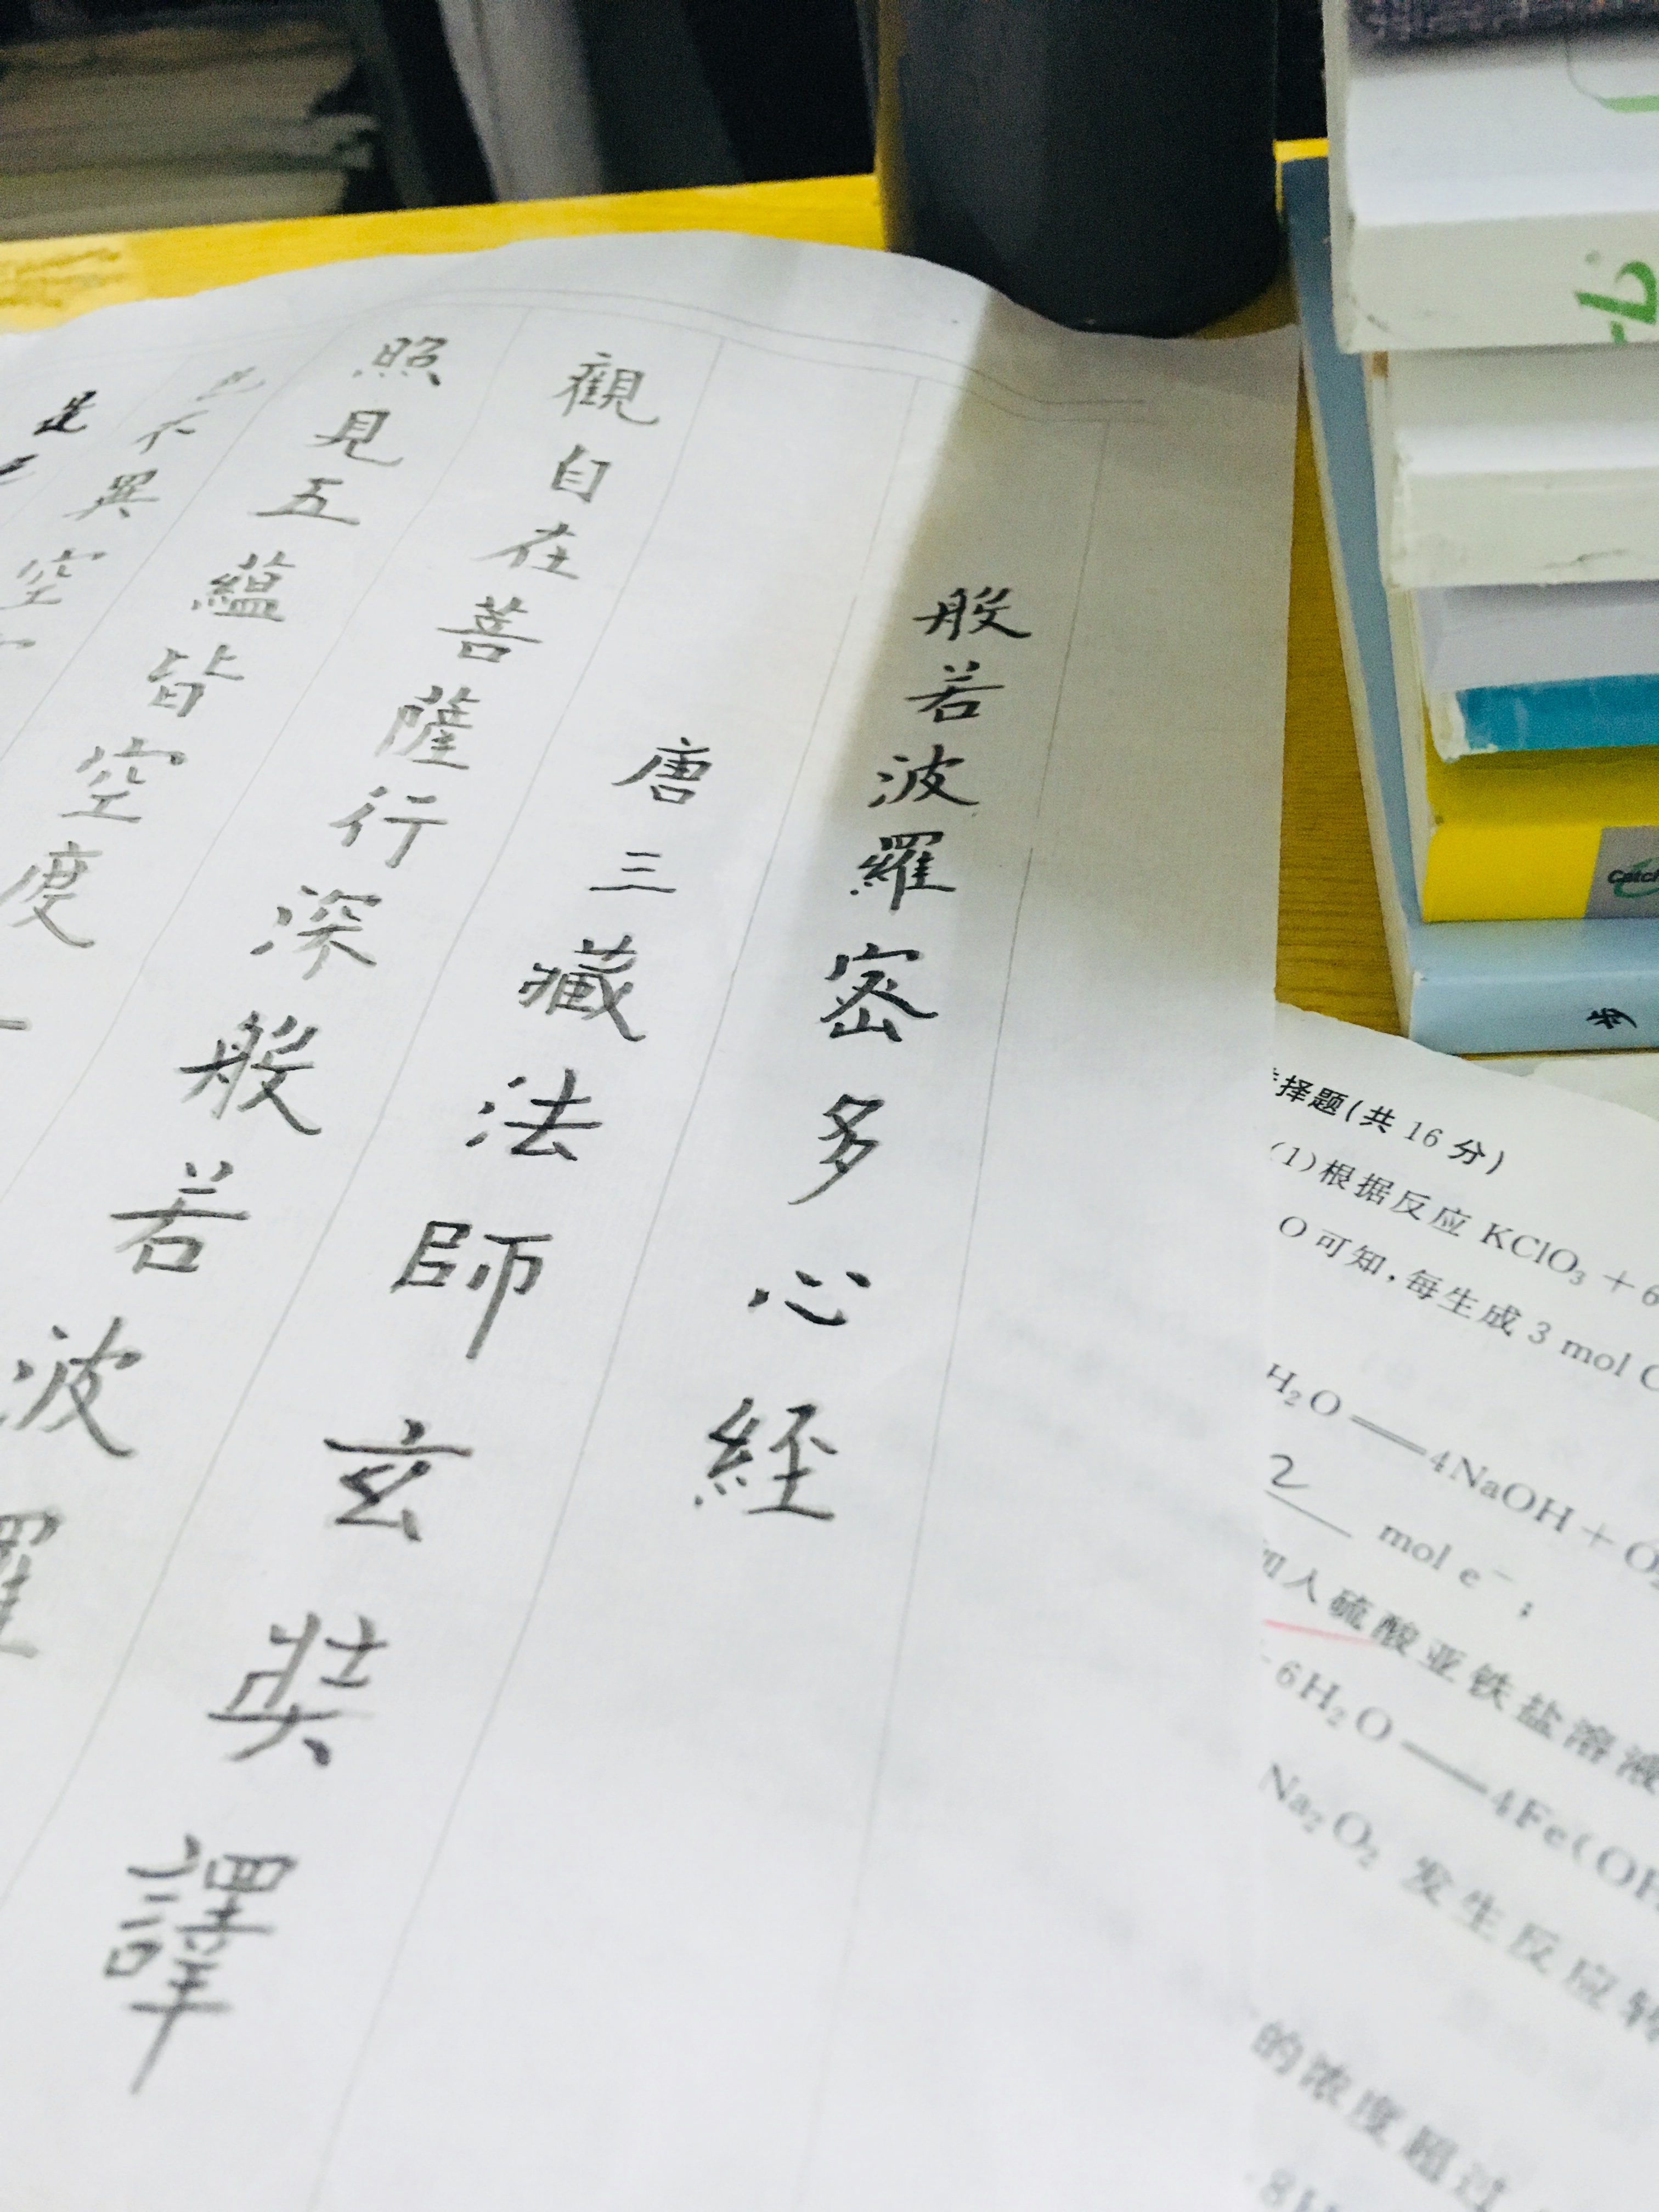 般若波羅密多心經
唐三藏法師玄奘譯
觀自在菩薩行深般若波羅
照見五蘊皆空度
色不異空
是
择题(共 16 分)
(1)根据反应 KClO₃ + 6
O 可知,每生成 3 mol
H₂O══4NaOH + O₂
2 mol e⁻;
加入硫酸亚铁盐溶液
6H₂O══4Fe(OH
Na₂O₂ 发生反应转
的浓度超过
Catch